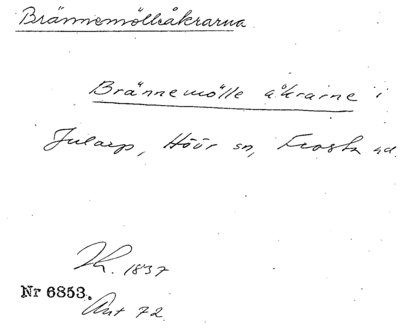 Brännemöllsåkrarna
Brännemölle åkrarne i
Jularp, Höör sn, Frosta hd.
Th. 1837
Nr 6853.
Ant 72